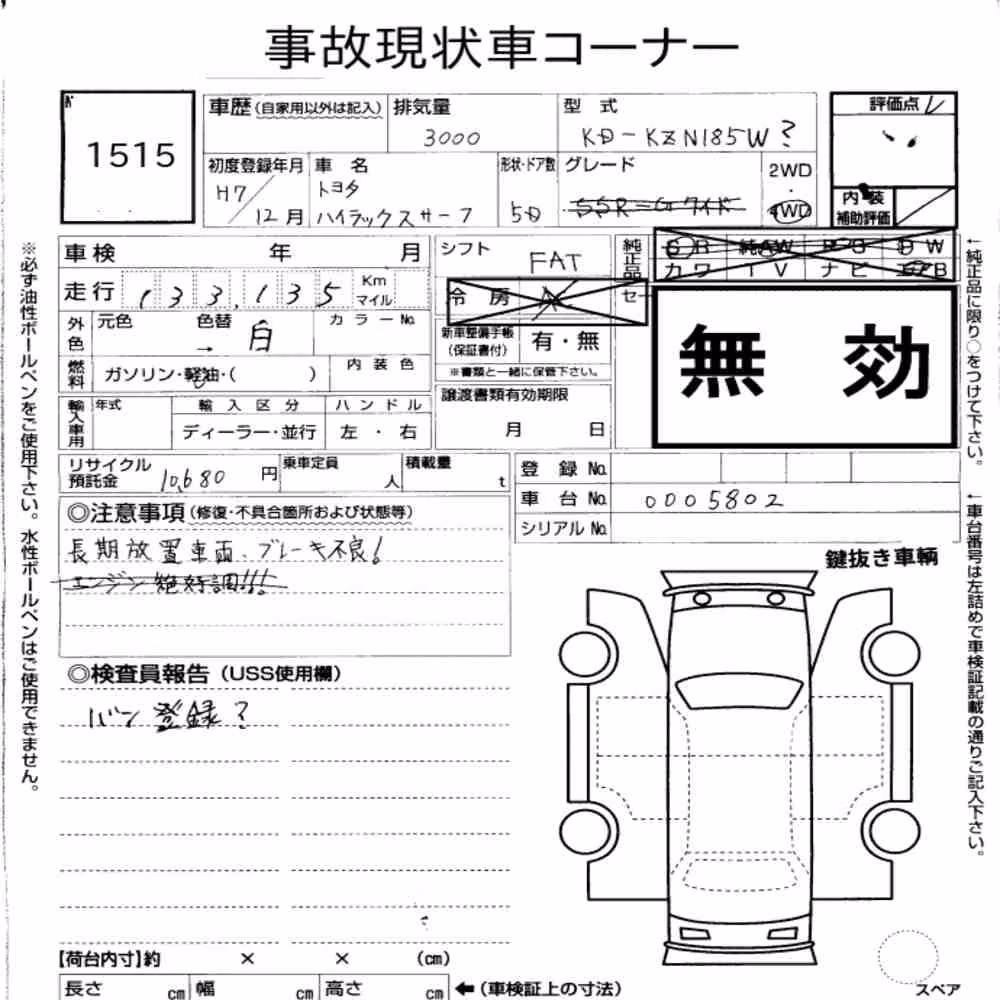 事故現状車コーナー
1515
車歴(自家用以外は記入)
排気量
3000
型 式
KD-KZN185W?
評価点
初度登録年月
H7/12月
車 名
トヨタ
ハイラックスサーフ
形状・ドア数
5D
グレード
SSR=Gワイド
2WD
・
4WD
内 装
補助評価
車検 年 月
走行 133,135 Km
マイル
シフト
FAT
冷 房
純正品
カワ TV ナビ
無 効
外色
元色 色替 カラーNo.
→ 白
燃料
ガソリン・軽油・( )
内 装 色
新車整備手帳
(保証書付)
有・無
※書類と一緒に保管下さい。
輸入車用
年式
輸 入 区 分
ハ ン ド ル
ディーラー・並行
左 ・ 右
譲渡書類有効期限
月 日
リサイクル
預託金
10,680 円
乗車定員
人
積載量
t
登 録 No.
車 台 No. 0005802
シリアル No.
◎注意事項(修復・不具合箇所および状態等)
長期放置車両、ブレーキ不良!
エンジン絶好調!!!
鍵抜き車輌
◎検査員報告(USS使用欄)
バン登録?
【荷台内寸】約 × × (cm)
長さ cm 幅 cm 高さ cm
←(車検証上の寸法)
スペア
※必ず油性ボールペンをご使用下さい。水性ボールペンはご使用できません。
←純正品に限り○をつけて下さい。
←車台番号は左詰めで車検証記載の通りご記入下さい。